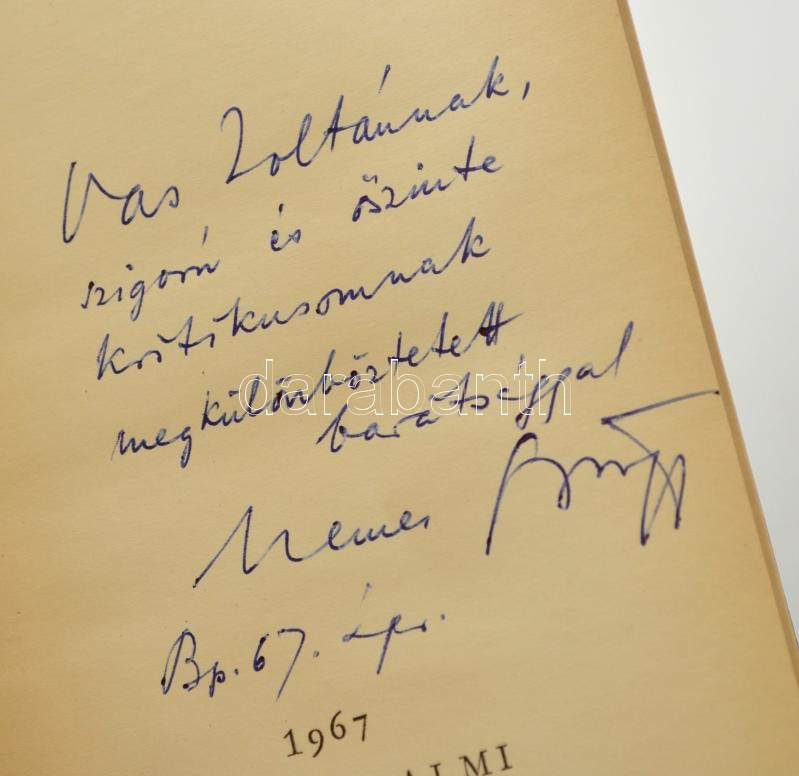 Vas Zoltánnak,
szigorú és őszinte
kritikusomnak
megkülönböztetett
barátsággal
Nemes György
Bp. 67. ápr.
1967
ALMI
darabanth